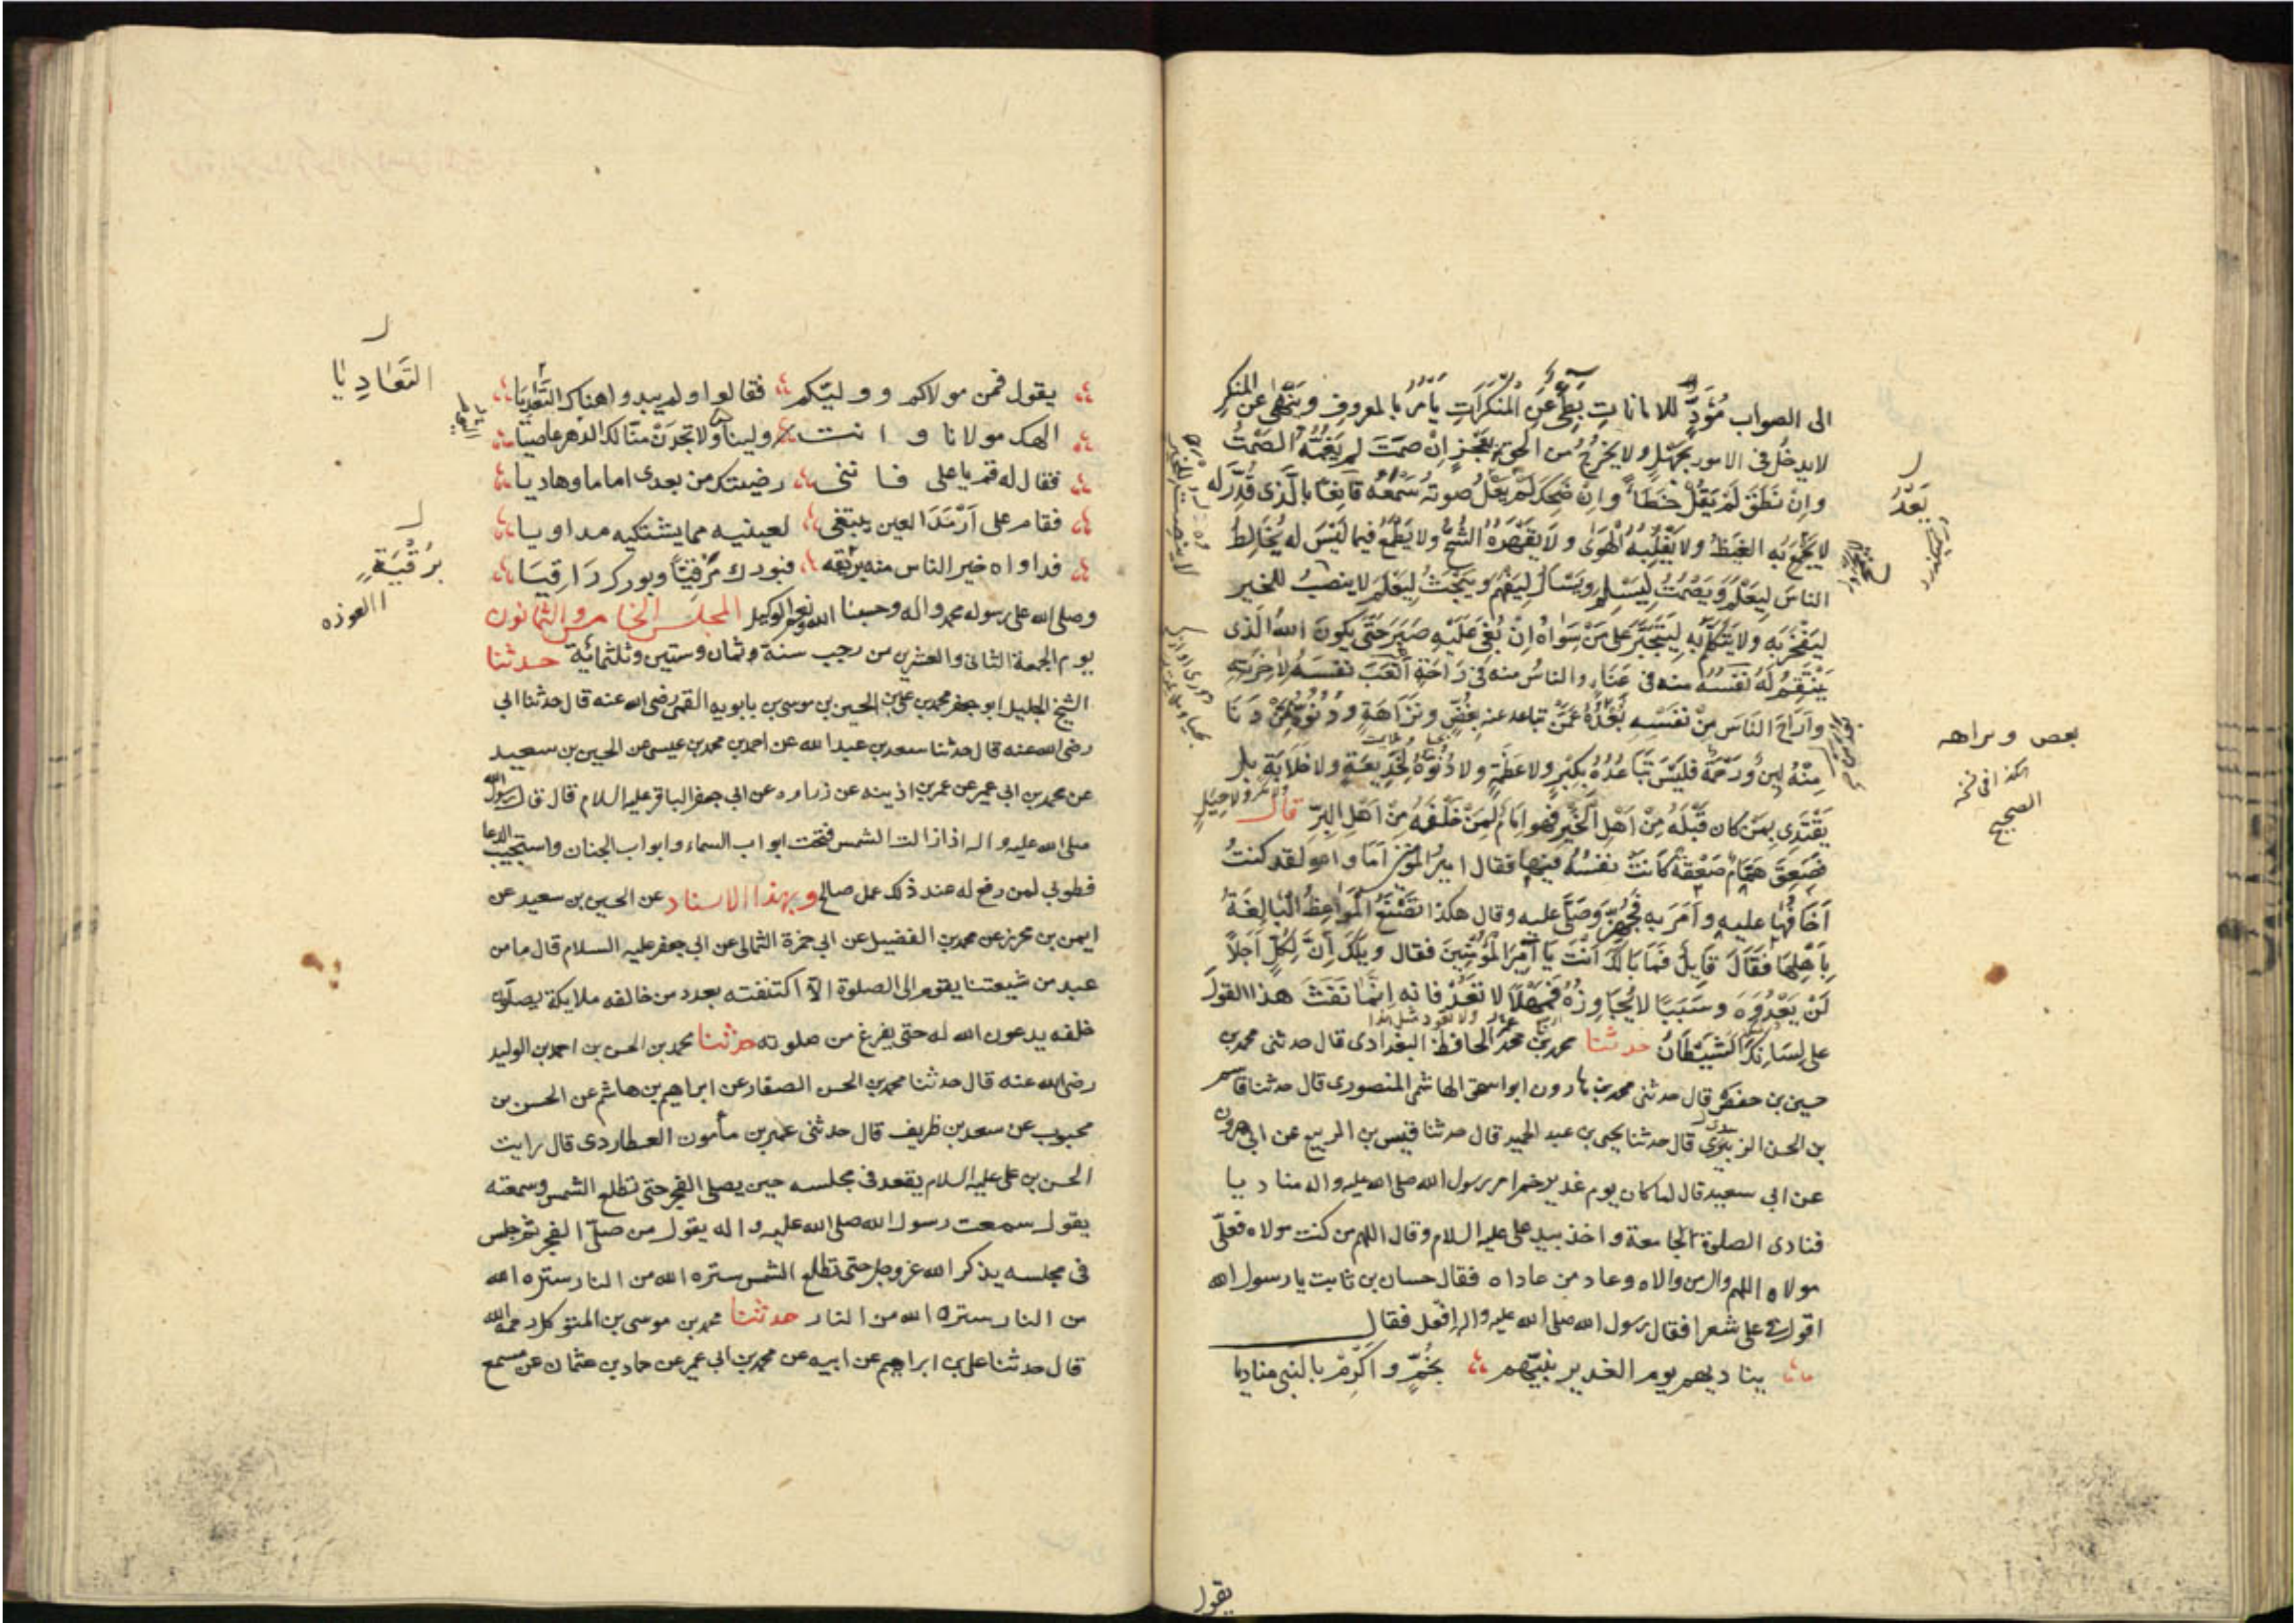 الى الصواب مُؤَدٍّ للامانات بَطِئٌ عَنِ المُنْكَرَاتِ يَأْمُرُ بالمعروفِ وَيَنْهٰى عَنِ المنكرِ
لايدخُل فى الامور بِجَهْلٍ ولا يَخْرُجُ من الحق بِعَجْزٍ اِنْ صمَتَ لم يَغُمَّهُ الصَّمْتُ
وانْ نَطَقَ لَمْ يَقُلْ خَطَأً وان ضَحِكَ لَمْ يَعْلُ صوتُه سَمْعَه قَانِعًا بالَّذى قُدِّرَ له
لا يَجْمَحُ بِه الغَيْظُ ولا يَغْلِبُه الْهَوىٰ ولا يَقْهَرُهُ الشُّحُّ ولا يَطْمَعُ فيما لَيْسَ له يُخَالِطُ
الناسَ لِيَعْلَمَ وَيَصْمُتُ لِيَسْلَمَ ويَسْأَلُ لِيَفْهَمَ وَيَبْحَثُ لِيَعْلَمَ لا ينصتُ للخير
لِيَفْخَرَ بِه ولا يَتَكَلَّمُ بِه لِيَتَجَبَّرَ على مَنْ سِوَاهُ اِنْ بُغِىَ عَلَيْهِ صَبَرَ حَتّى يَكونَ اللهُ الَّذى
يَنْتَقِمُ لَهُ نَفْسُهُ منه فى عَنَاءٍ والناسُ منه فى رَاحَةٍ اَتْعَبَ نفسَهُ لِاٰخِرَتِه
واَرَاحَ النَّاسَ مِنْ نَفْسِه بُعْدُهُ عَمَّنْ تباعد عنه بُغْضٌ ونَزَاهَةٍ ودُنُوُّهُ مِمَّنْ دَنَا
مِنْهُ لِينٌ وَرَحْمَةٌ فَلَيْسَ تَبَاعُدُهُ بِكِبْرٍ ولا عَظَمَةٍ ولا دُنُوُّهُ لِخَدِيعَةٍ ولا خِلَابَةٍ بل
يَقْتَدِى بِمَنْ كان قَبْلَهُ مِنْ اَهْلِ الْخَيْرِ فهو اِمَامٌ لِمَنْ خَلْفَهُ مِنْ اَهْلِ البِرّ قال
فَصَعِقَ هَمَّامٌ صَعْقَةً كَانَتْ نفسُهُ فيها فقال امير المؤمنين اَمَا والله لقد كنتُ
اَخَافُهَا عليه واَمَرَ به فَجُهِّزَ وَصَلَّى عليه وقال هكذا تَصْنَعُ الْمَوَاعِظُ الْبَالِغَةُ
بِاَهْلِهَا فَقَالَ قَايِلٌ فَمَا بَالُكَ اَنْتَ يَا اَمِيرَ الْمُؤْمِنِينَ فقال وَيْلَكَ اِنَّ لِكُلٍّ اَجَلاً
لَنْ يَعْدُوَهُ وسَبَبًا لا يُجَاوِزُهُ فَمَهْلًا لا تَعُدْ فانه اِنَّمَا نَفَثَ هذا القولَ
على لِسَانِكَ الشَّيْطَانُ حدثنا محمد بن عمر الحافظ البغدادى قال حدثنى محمد بن
حسين بن حفص قال حدثنى محمد بن هارون ابو اسحق الهاشمى المنصورى قال حدثنا قاسم
بن الحسن الزبيدى قال حدثنا يحيى بن عبد الحميد قال حدثنا قيس بن الربيع عن ابى هرون
عن ابى سعيد قال لما كان يوم غدير خم امر رسول الله صلى الله عليه واله مناديا
فنادى الصلوة الجامعة واخذ بيد على عليه السلام وقال اللهم من كنت مولاه فعلىّ
مولاه اللهم وال من والاه وعاد من عاداه فقال حسان بن ثابت يا رسول الله
اقول فى على شعرا فقال رسول الله صلى الله عليه واله افعل فقال
يناديهم يوم الغدير نبيّهم بخُمٍّ واَكْرِمْ بالنبى مناديا
يَعْدُ
بعص ونراهه
كذا فى نسخه
الصحيح
يقول
يقول فمن مولاكم ووليّكم فقالوا ولم يبدوا هناك التَّعَادِيَا
الهك مولانا وانت ولينا ولا تجدَنْ منّا لك الدهر عاصيا
فقال له قم يا على فاننى رضيتك من بعدى اماما وهاديا
فقام على اَرْمَدَ العين يبتغى لعينيه مما يشتكيه مداويا
فداواه خير الناس منه بريقه فبورك مَرْقِيًّا وبورك رَاقِيَا
وصلى الله على رسوله محمد واله وحسبنا الله ونعم الوكيل المجلس الخامس والثمانون
يوم الجمعة الثانى والعشرين من رجب سنة وثمان وستين وثلثمائة حدثنا
الشيخ الجليل ابو جعفر محمد بن على بن الحسين بن موسى بن بابويه القمى رضى الله عنه قال حدثنا ابى
رضى الله عنه قال حدثنا سعد بن عبد الله عن احمد بن محمد بن عيسى عن الحسين بن سعيد
عن محمد بن ابى عمير عن عمر بن اذينه عن زراره عن ابى جعفر الباقر عليه السلام قال قال رسول الله
صلى الله عليه واله اذا زالت الشمس فتحت ابواب السماء وابواب الجنان واستجيب الدعا
فطوبى لمن رفع له عند ذلك عمل صالح وبهذا الاسناد عن الحسين بن سعيد عن
ايمن بن محرز عن محمد بن الفضيل عن ابى حمزة الثمالى عن ابى جعفر عليه السلام قال ما من
عبد من شيعتنا يقوم الى الصلوة الاّ اكتنفته بعدد من خالفه ملايكة يصلّون
خلفه يدعون الله له حتى يفرغ من صلوته حدثنا محمد بن الحسن بن احمد بن الوليد
رضى الله عنه قال حدثنا محمد بن الحسن الصفار عن ابراهيم بن هاشم عن الحسن بن
محبوب عن سعد بن ظريف قال حدثنى عمير بن مأمون العطاردى قال رايت
الحسن بن على عليه السلام يقعد فى مجلسه حين يصلى الفجر حتى تطلع الشمس وسمعته
يقول سمعت رسول الله صلى الله عليه واله يقول من صلّى الفجر ثم جلس
فى مجلسه يذكر الله عز وجل حتى تطلع الشمس ستره الله من النار ستره الله
من النار ستره الله من النار حدثنا محمد بن موسى بن المتوكل رحمه الله
قال حدثنا على بن ابراهيم عن ابيه عن محمد بن ابى عمير عن حماد بن عثمان عن مسمع
التَعَادِيَا
بُرُقْيَةٍ
العوذه